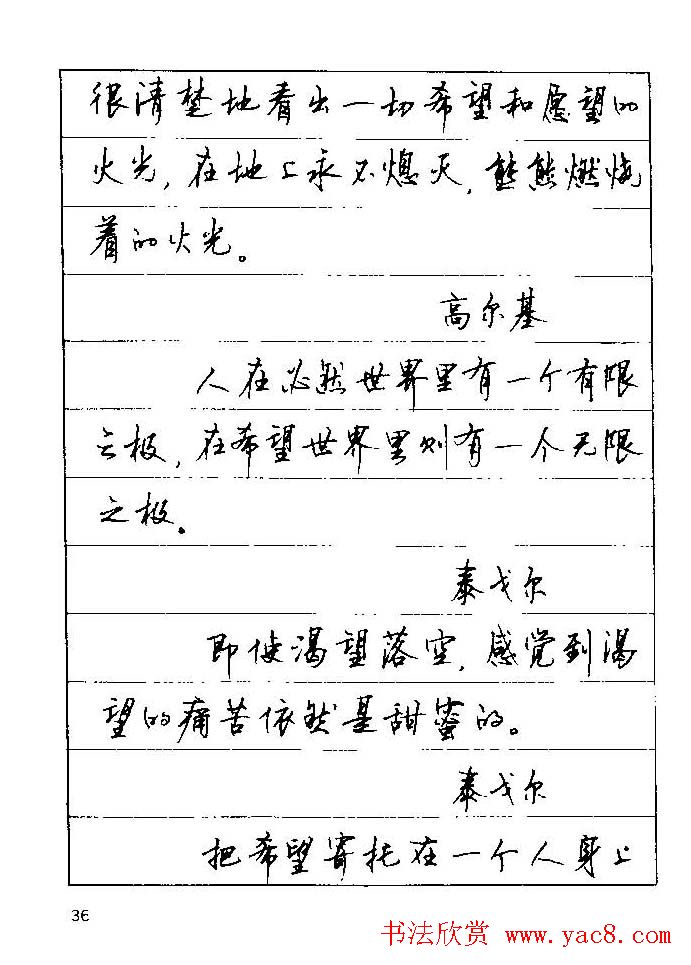 很清楚地看出一切希望和愿望的
火光,在地上永不熄灭,熊熊燃烧
着的火光。
高尔基
人在必然世界里有一个有限
之极,在希望世界里则有一个无限
之极。
泰戈尔
即使渴望落空,感觉到渴
望的痛苦依然是甜蜜的。
泰戈尔
把希望寄托在一个人身上
36
书法欣赏 www.yac8.com